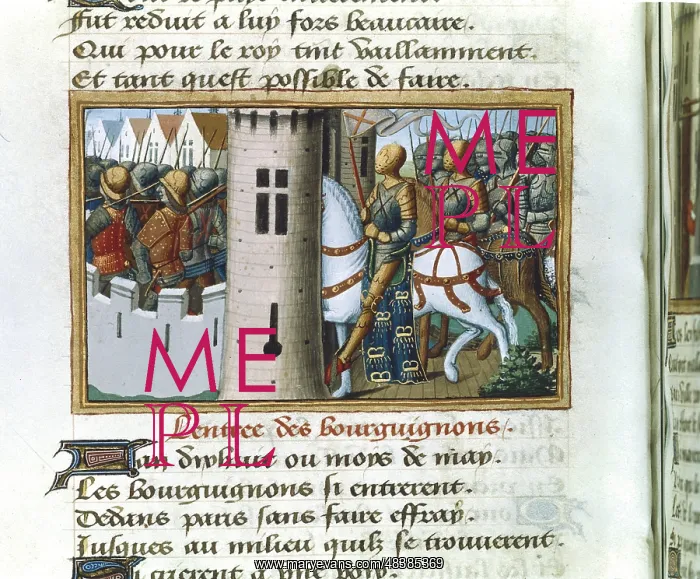 fut reduit a luy fors beaucaire.
Qui pour le roy tint vaillamment.
Et tant quest possible de faire.
ME
PL
ME
PL
Lentree des bourguignons.
Lan dixhuit ou moys de may.
Les bourguignons si entrerent.
Dedans paris sans faire effray.
Jusques au milieu quilz se trouverent.
www.maryevans.com/48385369